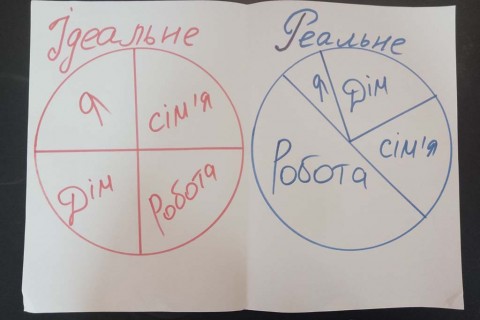 Ідеальне
Я
сім'я
Дім
Робота
Реальне
Я
Дім
сім'я
Робота